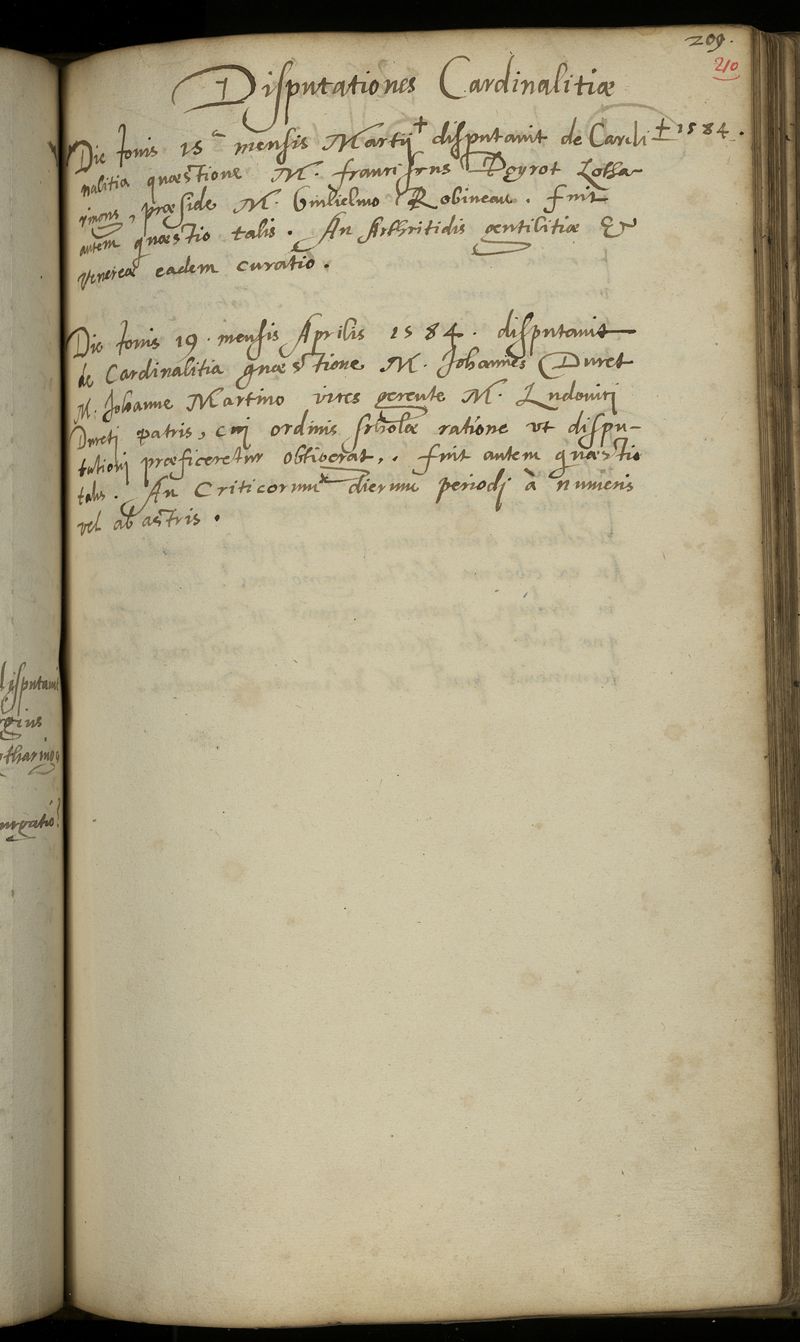 209.
210
Disputationes Cardinalitiæ
Die Jovis 15ª mensis Martij + disputavit de Cardi + 1584.
nalitia quæstione M. Franciscus Peyrot Lotha-
ringus, præside M. Guilielmo Robineau. Fuit
autem quæstio talis. An Arthritidis gentilitiæ &
Venereæ eadem curatio.
Die Jovis 19. mensis Aprilis 1584. disputavit
de Cardinalitia quæstione M. Johannes Duret
M. Johanne Martino vices gerente M. Ludovici
Dureti patris, cui ordinis scholæ ratione ut dispu-
tationi præficeretur obtigerat, . fuit autem quæstio
talis. An Criticorum dierum periodi à numeris
vel ab astris.
disputavit
gius
tharing
urgatio?